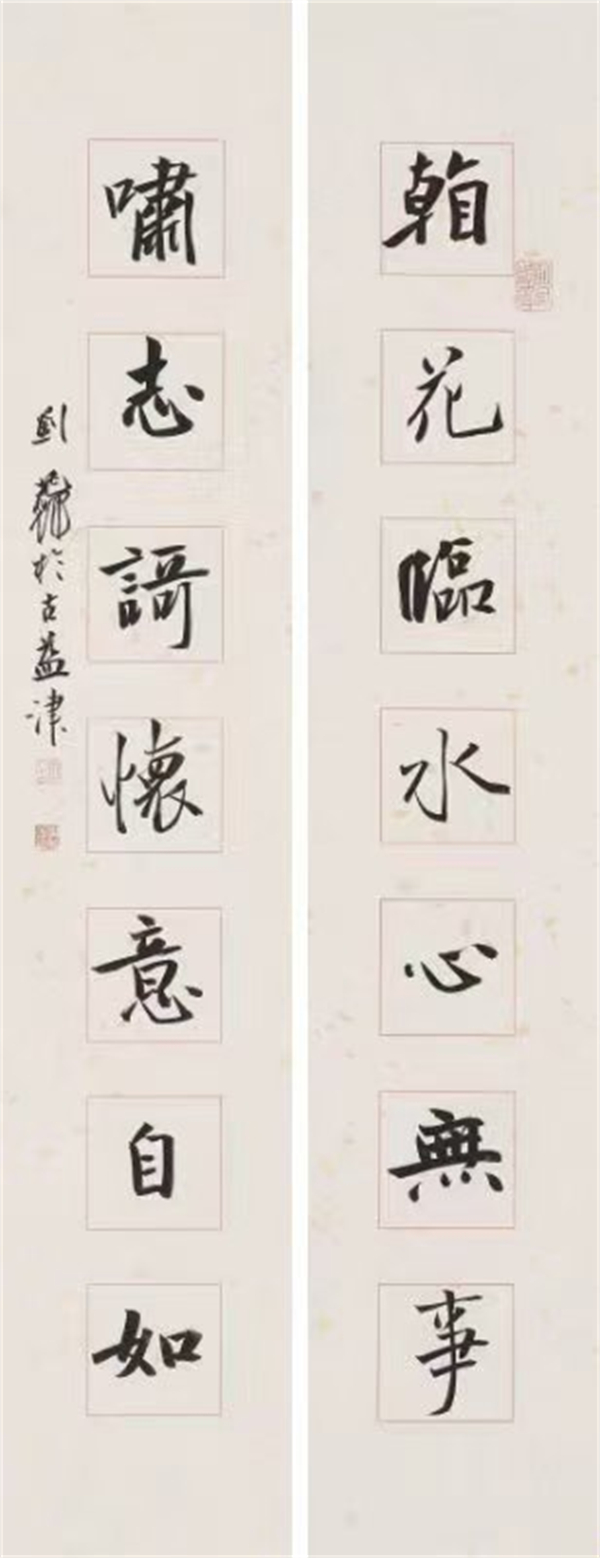 看花臨水心無事
嘯志謌懷意自如
劉 於古益津